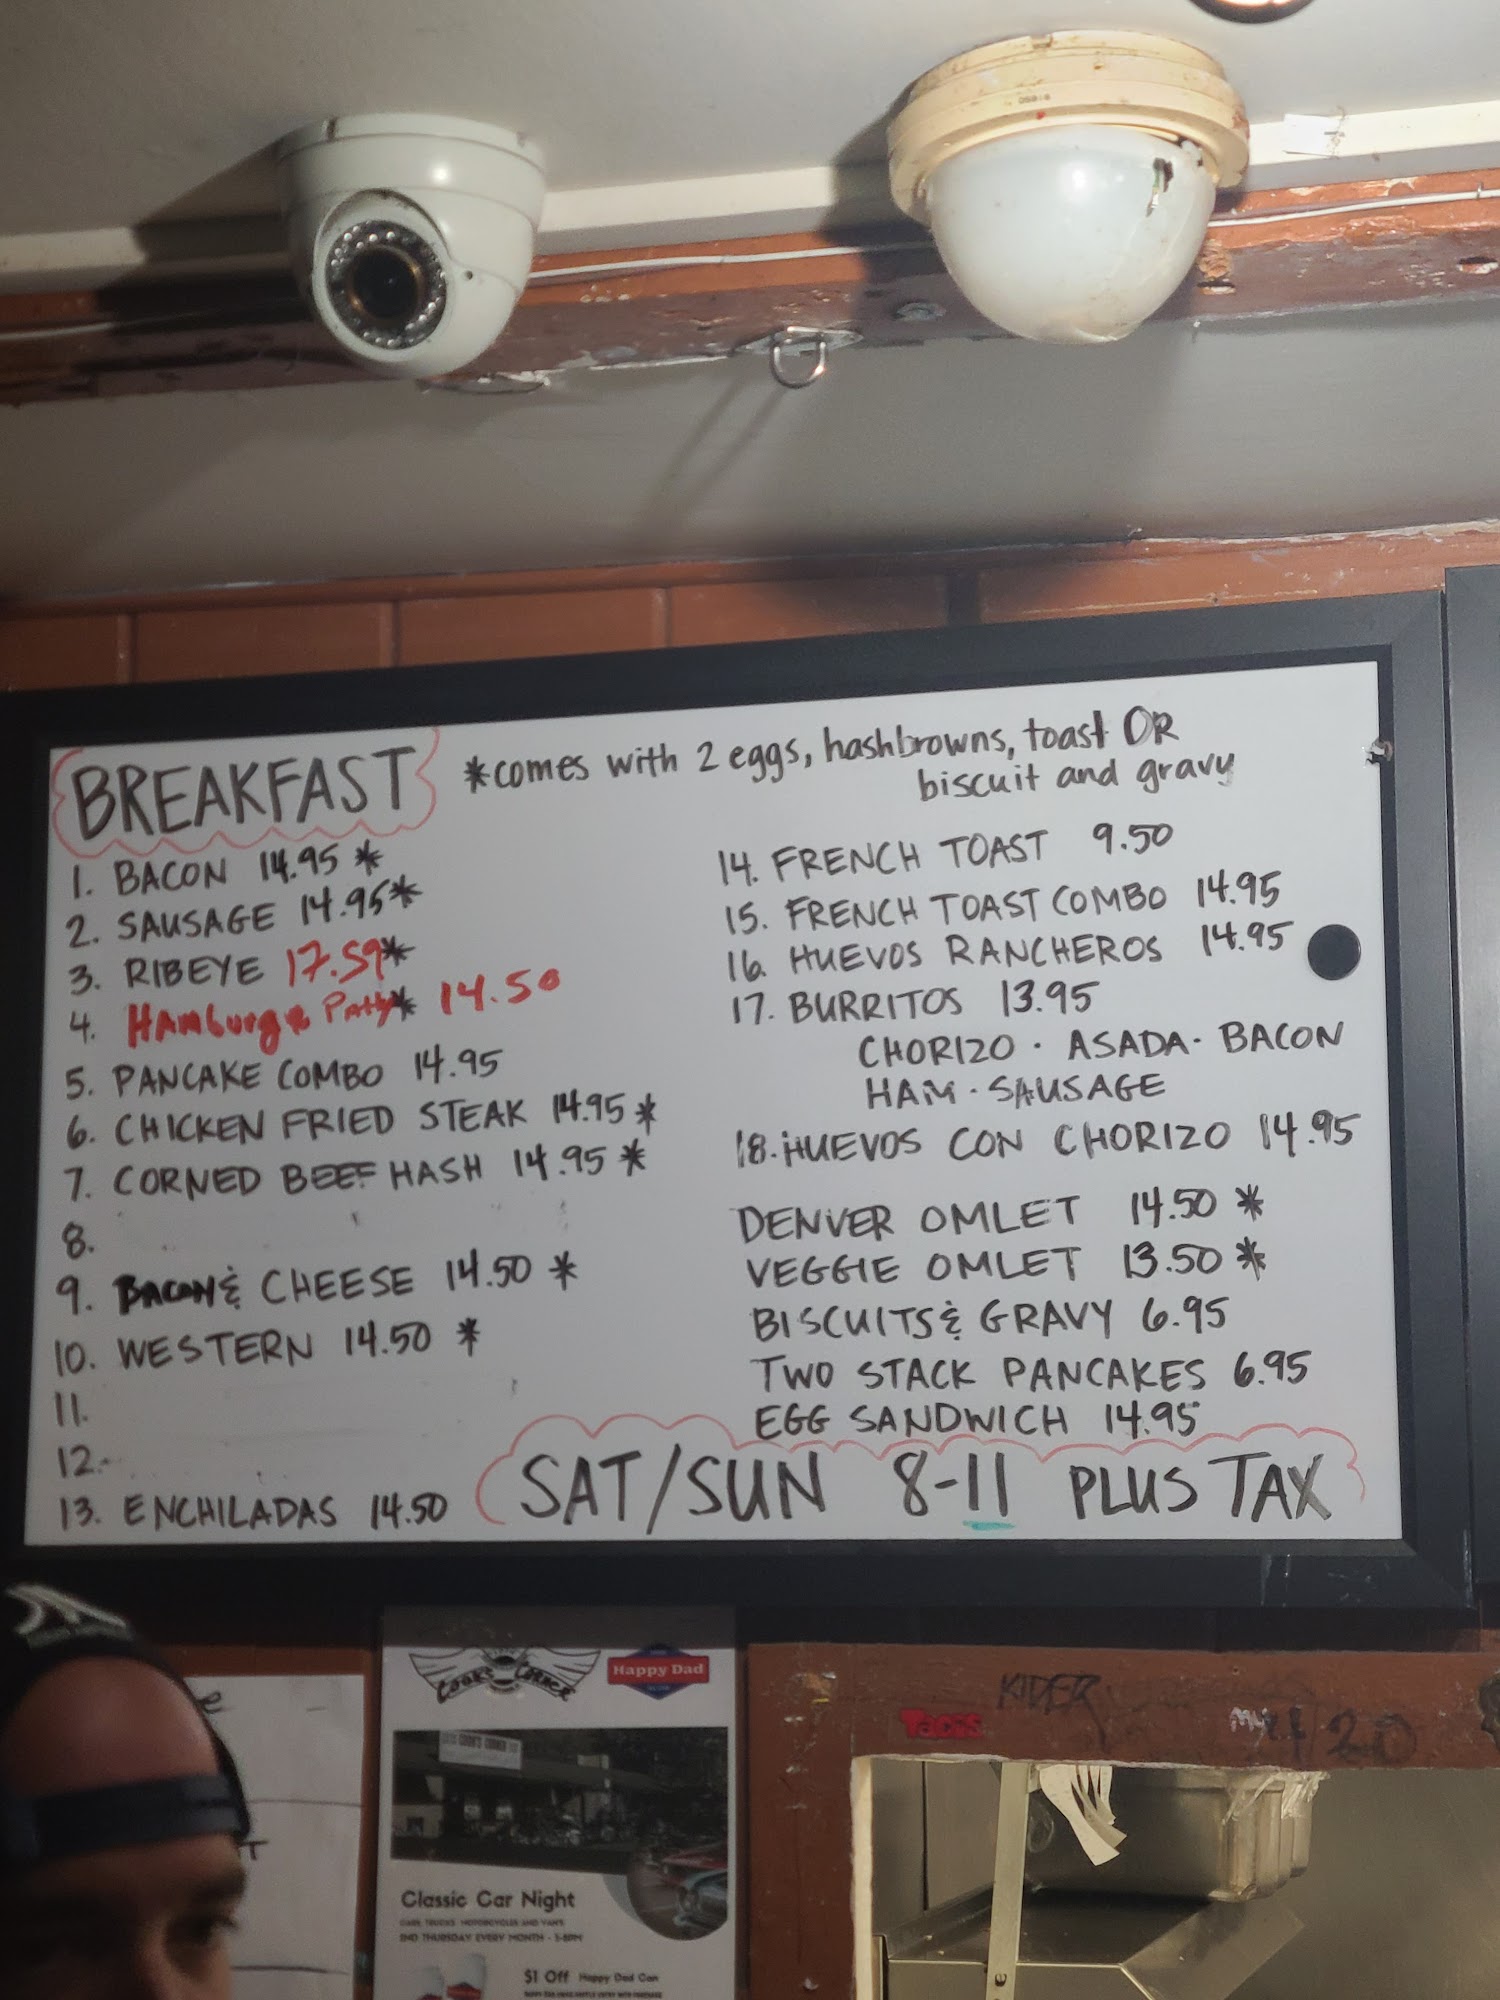 BREAKFAST
*comes with 2 eggs, hashbrowns, toast OR
biscuit and gravy
1. BACON 14.95 *
2. SAUSAGE 14.95 *
3. RIBEYE 17.59 *
4. Hamburge Patty * 14.50
5. PANCAKE COMBO 14.95
6. CHICKEN FRIED STEAK 14.95 *
7. CORNED BEEF HASH 14.95 *
8.
9. BACON & CHEESE 14.50 *
10. WESTERN 14.50 *
11.
12.
13. ENCHILADAS 14.50
14. FRENCH TOAST 9.50
15. FRENCH TOAST COMBO 14.95
16. HUEVOS RANCHEROS 14.95
17. BURRITOS 13.95
CHORIZO · ASADA · BACON
HAM · SAUSAGE
18. HUEVOS CON CHORIZO 14.95
DENVER OMLET 14.50 *
VEGGIE OMLET 13.50 *
BISCUITS & GRAVY 6.95
TWO STACK PANCAKES 6.95
EGG SANDWICH 14.95
SAT/SUN 8-11 PLUS TAX
COOK'S CORNER
Happy Dad
COOK'S CORNER
Classic Car Night
CARS, TRUCKS, MOTORCYCLES AND VANS
2ND THURSDAY EVERY MONTH - 5-8PM
$1 Off Happy Dad Can
KIDER
TACOS
20